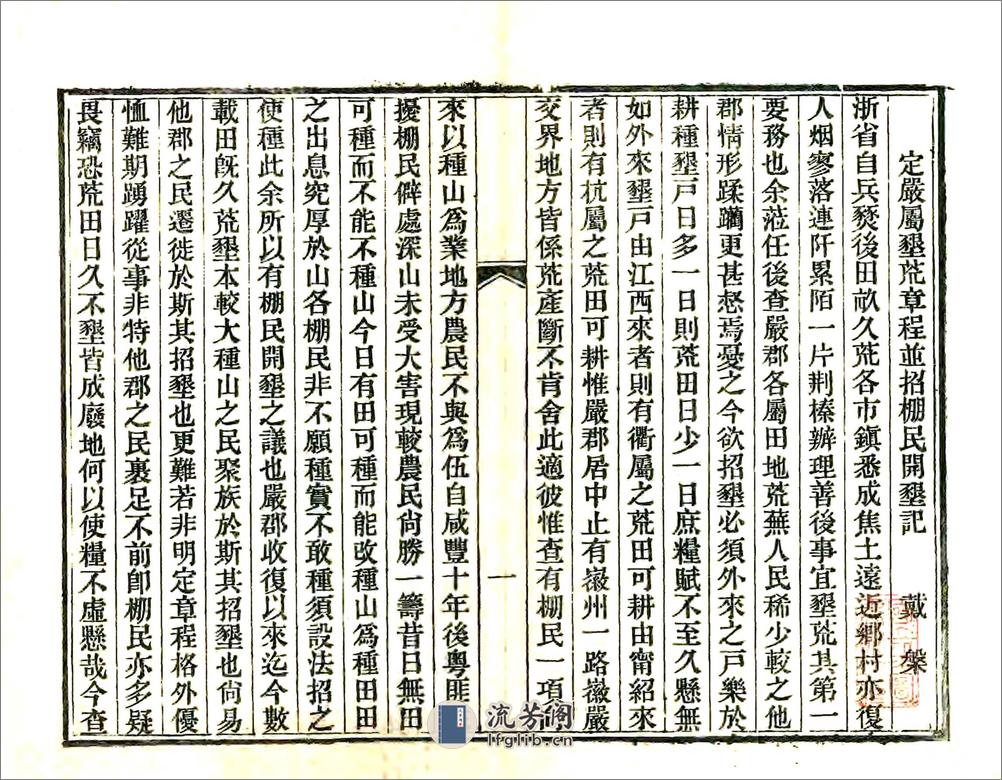 定嚴屬墾荒章程並招棚民開墾記 戴槃
浙省自兵燹後田畝久荒各市鎮悉成焦土遠近鄉村亦復
人烟寥落連阡累陌一片荆榛辦理善後事宜墾荒其第一
要務也余涖任後查嚴郡各屬田地荒蕪人民稀少較之他
郡情形蹂躪更甚惄焉憂之今欲招墾必須外來之戶樂於
耕種墾戶日多一日則荒田日少一日庶糧賦不至久懸無
如外來墾戶由江西來者則有衢屬之荒田可耕由甯紹來
者則有杭屬之荒田可耕惟嚴郡居中止有徽州一路徽嚴
交界地方皆係荒產斷不肯舍此適彼惟查有棚民一項
一
來以種山爲業地方農民不與爲伍自咸豐十年後粵匪
擾棚民僻處深山未受大害現較農民尙勝一籌昔日無田
可種而不能不種山今日有田可種而能改種山爲種田田
之出息究厚於山各棚民非不願種實不敢種須設法招之
使種此余所以有棚民開墾之議也嚴郡收復以來迄今數
載田旣久荒墾本較大種山之民聚族於斯其招墾也尙易
他郡之民遷徙於斯其招墾也更難若非明定章程格外優
恤難期踴躍從事非特他郡之民裹足不前卽棚民亦多疑
畏竊恐荒田日久不墾皆成廢地何以使糧不虛懸哉今查
流芳阁
lfglib.cn